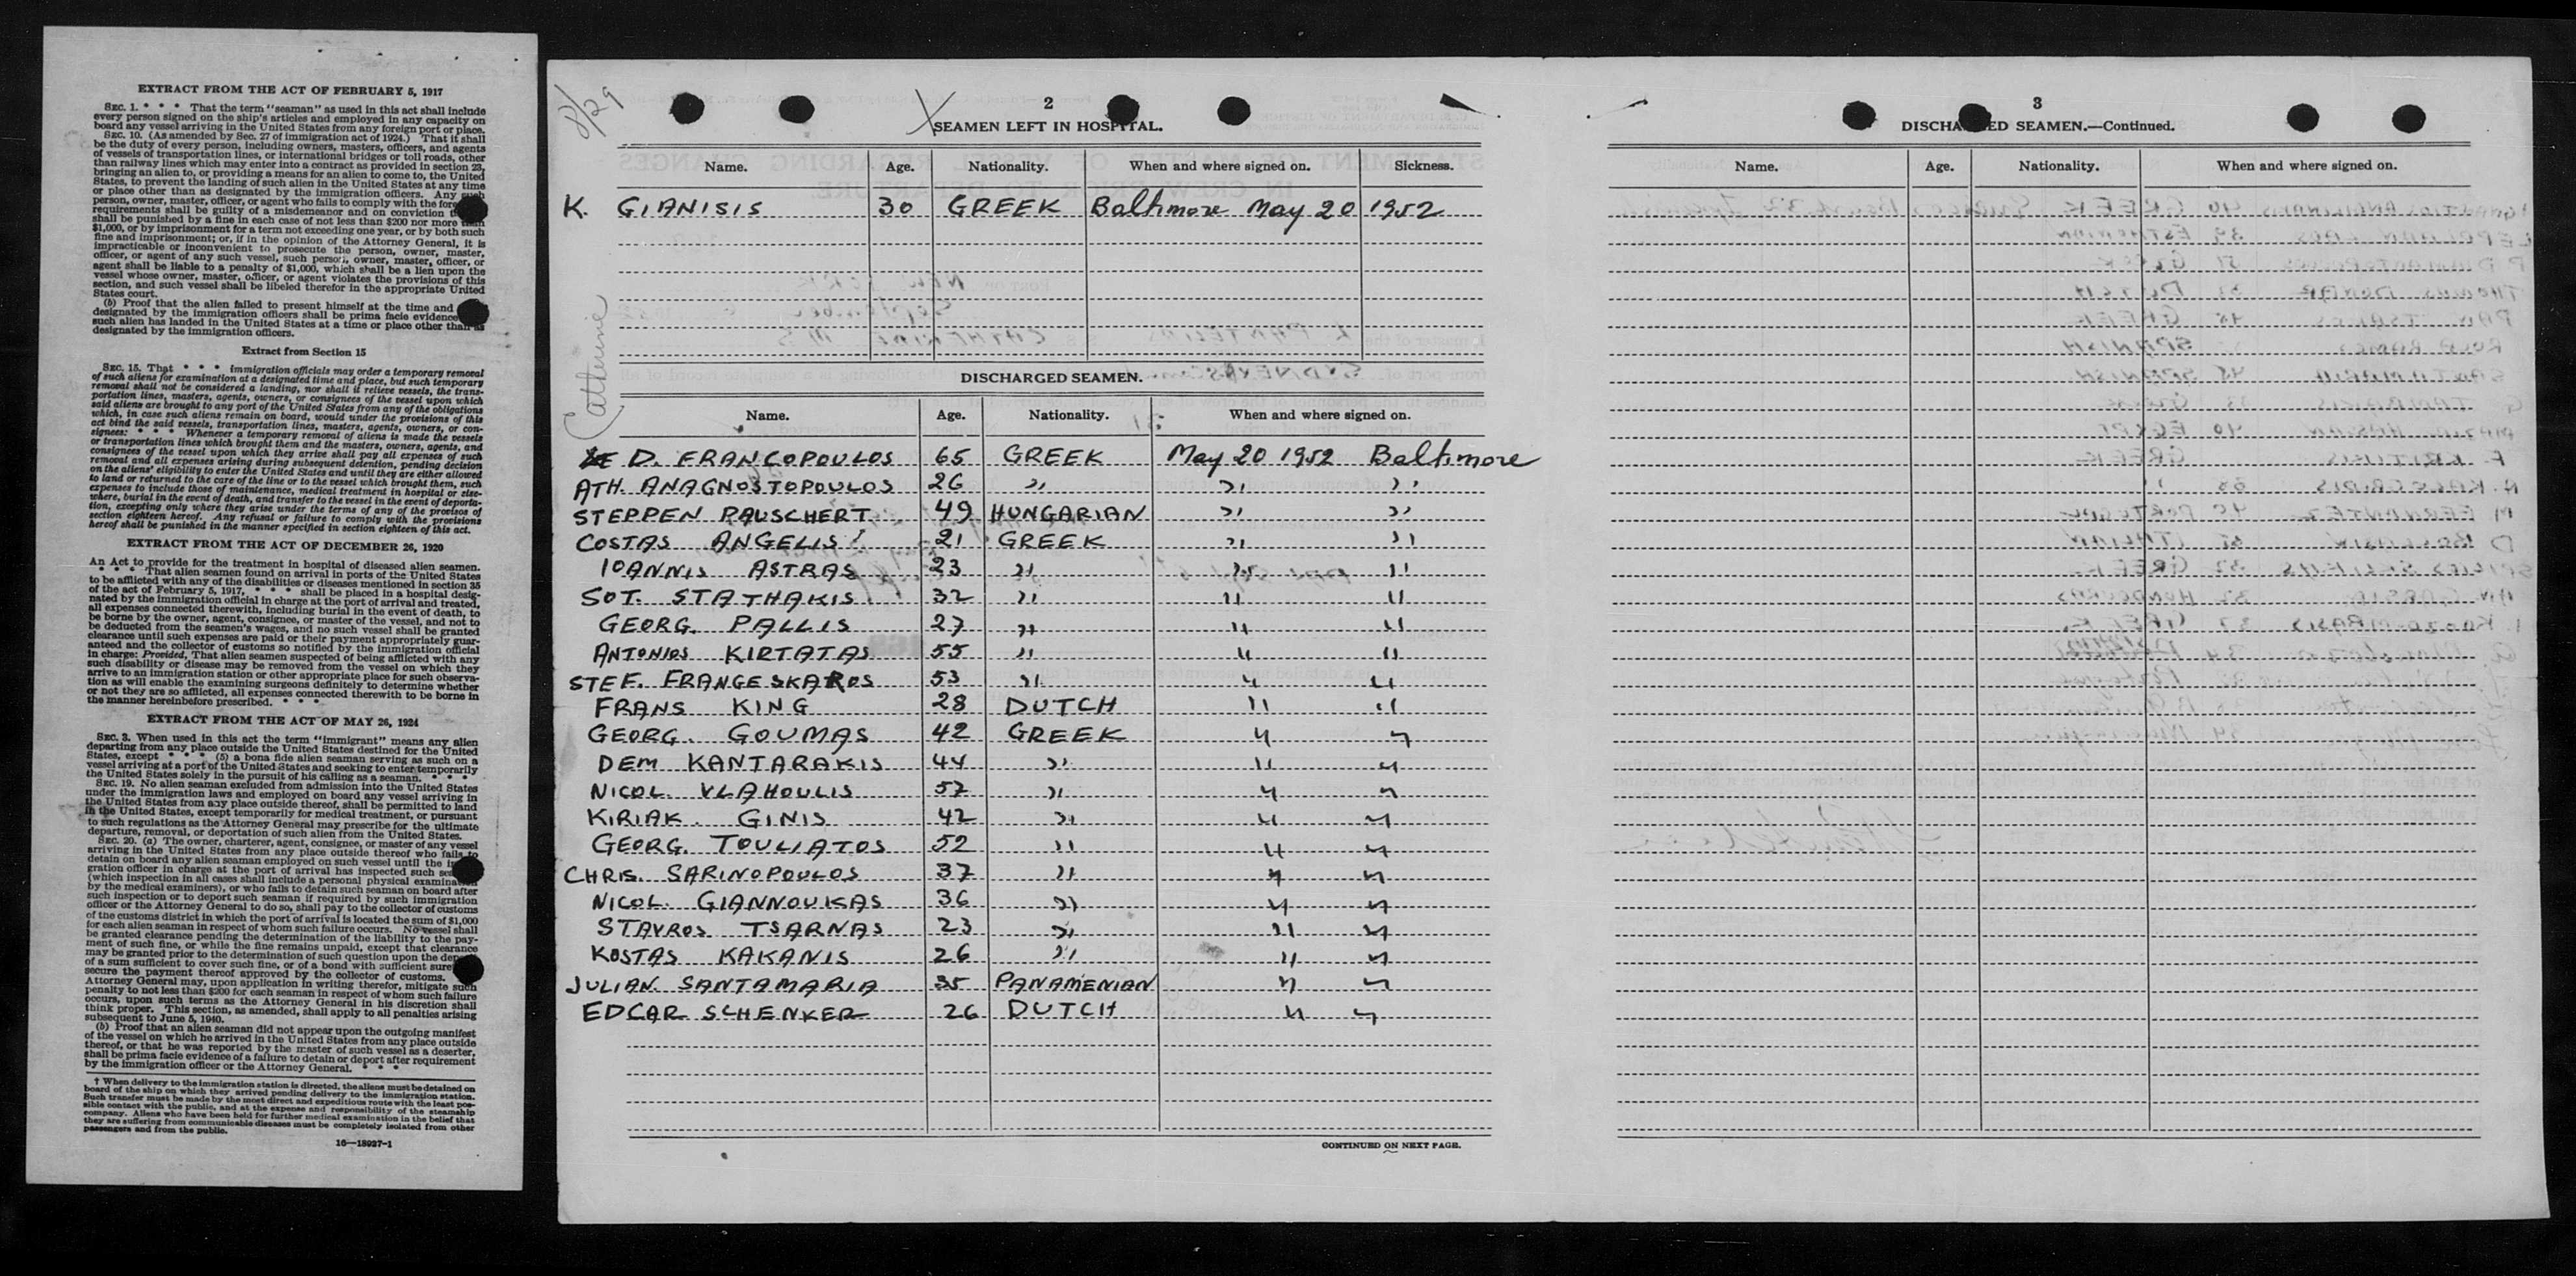 EXTRACT FROM THE ACT OF FEBRUARY 5, 1917
SEC. 1. * * * That the term "seaman" as used in this act shall include
every person signed on the ship's articles and employed in any capacity on
board any vessel arriving in the United States from any foreign port or place.
SEC. 10. (As amended by Sec. 27 of immigration act of 1924.) That it shall
be the duty of every person, including owners, masters, officers, and agents
of vessels of transportation lines, or international bridges or toll roads, other
than railway lines which may enter into a contract as provided in section 23,
bringing an alien to, or providing a means for an alien to come to, the United
States, to prevent the landing of such alien in the United States at any time
or place other than as designated by the immigration officers. Any such
person, owner, master, officer, or agent who fails to comply with the
requirements shall be guilty of a misdemeanor and on conviction
shall be punished by a fine in each case of not less than $200 nor more than
$1,000, or by imprisonment for a term not exceeding one year, or by both such
fine and imprisonment; or, if in the opinion of the Attorney General, it is
impracticable or inconvenient to prosecute the person, owner, master,
officer, or agent of any such vessel, such person, owner, master, officer, or
agent shall be liable to a penalty of $1,000, which shall be a lien upon the
vessel whose owner, master, officer, or agent violates the provisions of this
section, and such vessel shall be libeled therefor in the appropriate United
States court.
(b) Proof that the alien failed to present himself at the time and
designated by the immigration officers shall be prima facie evidence
such alien has landed in the United States at a time or place other than as
designated by immigration officers.
Extract from Section 15
SEC. 15. That * * * immigration officials may order a temporary removal
of such aliens for examination at a designated time and place, but such temporary
removal shall not be considered a landing, nor shall it relieve vessels, the trans-
portation lines, masters, agents, owners, or consignees of the vessel upon which
said aliens are brought to any port of the United States from any of the obligations
which, in case such aliens remain on board, would under the provisions of this
act bind the said vessels, transportation lines, masters, agents, owners, or con-
signees: * * * Whenever a temporary removal of aliens is made the vessels
or transportation lines which brought them and the masters, owners, agents, and
consignees of the vessel upon which they arrive shall pay all expenses of such
removal and all expenses arising during subsequent detention, pending decision
on the aliens' eligibility to enter the United States and until they are either allowed
to land or returned to the care of the line or to the vessel which brought them, such
expenses to include those of maintenance, medical treatment in hospital or else-
where, burial in the event of death, and transfer to the vessel in the event of deporta-
tion, excepting only where they arise under the terms of any of the provisos of
section eighteen hereof. Any refusal or failure to comply with the provisions
hereof shall be punished in the manner specified in section eighteen of this act.
EXTRACT FROM THE ACT OF DECEMBER 26, 1920
An Act to provide for the treatment in hospital of diseased alien seamen.
* * * That alien seamen found on arrival in ports of the United States
to be afflicted with any of the disabilities or diseases mentioned in section 35
of the act of February 5, 1917, * * * shall be placed in a hospital desig-
nated by the immigration official in charge at the port of arrival and treated,
all expenses connected therewith, including burial in the event of death, to
be borne by the owner, agent, consignee, or master of the vessel, and not to
be deducted from the seamen's wages, and no such vessel shall be granted
clearance until such expenses are paid or their payment appropriately guar-
anteed and the collector of customs so notified by the immigration official
in charge: Provided, That alien seamen suspected of being afflicted with any
such disability or disease may be removed from the vessel on which they
arrive to an immigration station or other appropriate place for such observa-
tion as will enable the examining surgeons definitely to determine whether
or not they are so afflicted, all expenses connected therewith to be borne in
the manner hereinbefore prescribed. * * *
EXTRACT FROM THE ACT OF MAY 26, 1924
SEC. 3. When used in this act the term "immigrant" means any alien
departing from any place outside the United States destined for the United
States, except * * * (5) a bona fide alien seaman serving as such on a
vessel arriving at a port of the United States and seeking to enter temporarily
the United States solely in the pursuit of his calling as a seaman. * * *
SEC. 19. No alien seaman excluded from admission into the United States
under the immigration laws and employed on board any vessel arriving in
the United States from any place outside thereof, shall be permitted to land
in the United States, except temporarily for medical treatment, or pursuant
to such regulations as the Attorney General may prescribe for the ultimate
departure, removal, or deportation of such alien from the United States.
SEC. 20. (a) The owner, charterer, agent, consignee, or master of any vessel
arriving in the United States from any place outside thereof who fails to
detain on board any alien seaman employed on such vessel until the
gration officer in charge at the port of arrival has inspected such
(which inspection in all cases shall include a personal physical examination
by the medical examiners), or who fails to detain such seaman on board after
such inspection or to deport such seaman if required by such immigration
officer or the Attorney General to do so, shall pay to the collector of customs
of the customs district in which the port of arrival is located the sum of $1,000
for each alien seaman in respect of whom such failure occurs. No vessel shall
be granted clearance pending the determination of the liability to the pay-
ment of such fine, or while the fine remains unpaid, except that clearance
may be granted prior to the determination of such question upon the
of a sum sufficient to cover such fine, or of a bond with sufficient
secure the payment thereof approved by the collector of customs.
Attorney General may, upon application in writing therefor, mitigate such
penalty to not less than $200 for each seaman in respect of whom such failure
occurs, upon such terms as the Attorney General in his discretion shall
think proper. This section, as amended, shall apply to all penalties arising
subsequent to June 5, 1940.
(b) Proof that an alien seaman did not appear upon the outgoing manifest
of the vessel on which he arrived in the United States from any place outside
thereof, or that he was reported by the master of such vessel as a deserter,
shall be prima facie evidence of a failure to detain or deport after requirement
by the immigration officer or the Attorney General. * * *
† When delivery to the immigration station is directed, the aliens must be detained on
board of the ship on which they arrived pending delivery to the immigration station.
Such transfer must be made by the most direct and expeditious route with the least pos-
sible contact with the public, and at the expense and responsibility of the steamship
company. Aliens who have been held for further medical examination in the belief that
they are suffering from communicable diseases must be completely isolated from other
passengers and from the public.
16—18927-1
8/29
Catherine
2
SEAMEN LEFT IN HOSPITAL.
Name. Age. Nationality. When and where signed on. Sickness.
K. GIANISIS 30 GREEK Baltimore May 20 1952
DISCHARGED SEAMEN.
Name. Age. Nationality. When and where signed on.
D. FRANCOPOULOS 65 GREEK May 20 1952 Baltimore
ATH. ANAGNOSTOPOULOS 26 " " "
STEPPEN PAUSCHERT 49 HUNGARIAN " "
COSTAS ANGELIS 21 GREEK " "
IOANNIS ASTRAS 23 " " "
SOT. STATHAKIS 32 " " "
GEORG. PALLIS 27 " " "
ANTONIOS KIRTATAS 55 " " "
STEF. FRANGESKAROS 53 " " "
FRANS KING 28 DUTCH " "
GEORG. GOUMAS 42 GREEK " "
DEM KANTARAKIS 44 " " "
NICOL. VLAHOULIS 57 " " "
KIRIAK. GINIS 42 " " "
GEORG. TOULIATOS 52 " " "
CHRIS. SARINOPOULOS 37 " " "
NICOL. GIANNOUKAS 36 " " "
STAVROS TSARNAS 23 " " "
KOSTAS KAKANIS 26 " " "
JULIAN SANTAMARIA 35 PANAMENIAN " "
EDGAR SCHENKER 26 DUTCH " "
CONTINUED ON NEXT PAGE.
3
DISCHARGED SEAMEN.—Continued.
Name. Age. Nationality. When and where signed on.